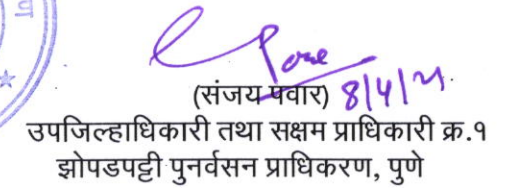 (संजय पवार) 8/4/21
उपजिल्हाधिकारी तथा सक्षम प्राधिकारी क्र.१
झोपडपट्टी पुनर्वसन प्राधिकरण, पुणे